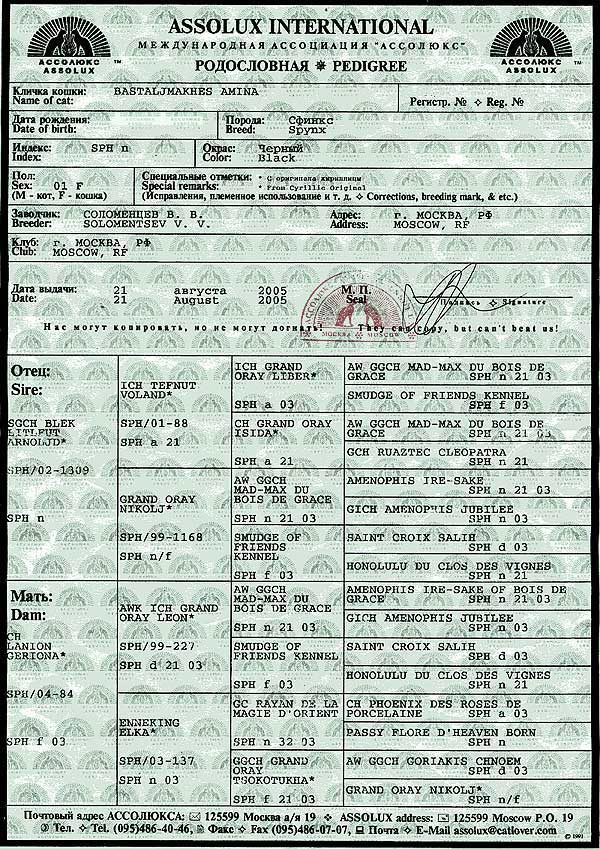 ASSOLUX INTERNATIONAL
МЕЖДУНАРОДНАЯ АССОЦИАЦИЯ "АССОЛЮКС"
РОДОСЛОВНАЯ ✵ PEDIGREE
АССОЛЮКС ™
ASSOLUX
АССОЛЮКС ™
ASSOLUX
Кличка кошки: BASTALJMAKHES AMINA
Name of cat:
Регистр. № ✧ Reg. №
Дата рождения:
Date of birth:
Порода: Сфинкс
Breed: Spynx
Индекс: SPH n
Index:
Окрас: Черный
Color: Black
Пол:
Sex: 01 F
(M - кот, F - кошка)
Специальные отметки: * С оригинала кириллицы
Special remarks: * From Cyrillic Original
(Исправления, племенное использование и т. д. ✧ Corrections, breeding mark, & etc.)
Заводчик: СОЛОМЕНЦЕВ В. В.
Breeder: SOLOMENTSEV V. V.
Адрес: г. МОСКВА, РФ
Address: MOSCOW, RF
Клуб: г. МОСКВА, РФ
Club: MOSCOW, RF
Дата выдачи: 21 августа 2005
Date: 21 August 2005
М. П.
Seal
МОСКВА MOSCOW
Подпись ✧ Signature
Нас могут копировать, но не могут догнать! They can copy, but can't beat us!
Отец:
Sire:
SGCH BLEK
LITLFUT
ARNOLJD*
SPH/02-1309
SPH n
ICH TEFNUT
VOLAND*
SPH/01-88
SPH a 21
GRAND ORAY
NIKOLJ*
SPH/99-1168
SPH n/f
ICH GRAND
ORAY LIBER*
SPH a 03
CH GRAND ORAY
ISIDA*
SPH a 21
AW GGCH
MAD-MAX DU
BOIS DE GRACE
SPH n 21 03
SMUDGE OF
FRIENDS
KENNEL
SPH f 03
AW GGCH MAD-MAX DU BOIS DE
GRACE SPH n 21 03
SMUDGE OF FRIENDS KENNEL
SPH f 03
AW GGCH MAD-MAX DU BOIS DE
GRACE SPH n 21 03
GCH RUAZTEC CLEOPATRA
SPH n 21
AMENOPHIS IRE-SAKE
SPH n 21 03
GICH AMENOPHIS JUBILEE
SPH n 03
SAINT CROIX SALIH
SPH d 03
HONOLULU DU CLOS DES VIGNES
SPH n 21
Мать:
Dam:
CH
LANION
GERIONA*
SPH/04-84
SPH f 03
AWK ICH GRAND
ORAY LEON*
SPH/99-227
SPH d 21 03
ENNEKING
ELKA*
SPH/03-137
SPH n 03
AW GGCH
MAD-MAX DU
BOIS DE GRACE
SPH n 21 03
SMUDGE OF
FRIENDS KENNEL
SPH f 03
GC RAYAN DE LA
MAGIE D'ORIENT
SPH n 32 03
GGCH GRAND
ORAY
TSOKOTUKHA*
SPH f 21 03
AMENOPHIS IRE-SAKE OF BOIS DE
GRACE SPH n 21 03
GICH AMENOPHIS JUBILEE
SPH n 03
SAINT CROIX SALIH
SPH d 03
HONOLULU DU CLOS DES VIGNES
SPH n 21
CH PHOENIX DES ROSES DE
PORCELAINE SPH a 03
PASSY FLORE D'HEAVEN BORN
SPH n
AW GGCH GORIAKIS CHNOEM
SPH d 03
GRAND ORAY NIKOLJ*
SPH n/f
Почтовый адрес АССОЛЮКСА: 125599 Москва а/я 19 ✧ ASSOLUX address: 125599 Moscow P.O. 19
Тел. ✧ Tel. (095)486-40-46, Факс ✧ Fax (095)486-07-07, Почта ✧ E-Mail assolux@catlover.com